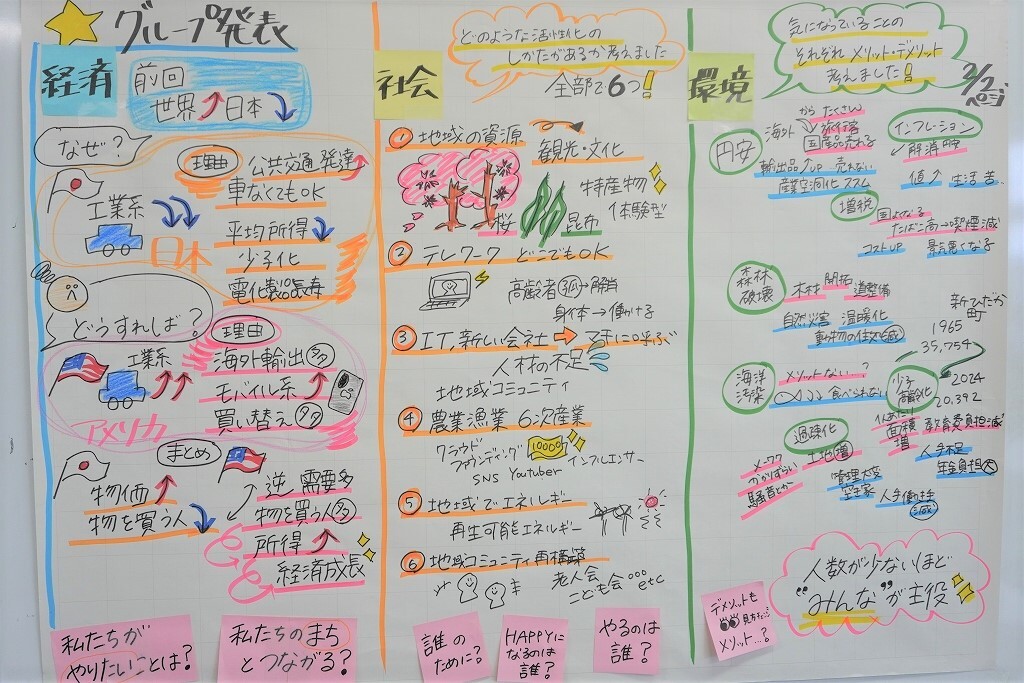 グループ発表
経済
前回
世界↑日本↓
なぜ?
理由
公共交通発達↑
車なくてもOK
工業系↓↓
日本
平均所得↓
少子化
電化製品長寿
どうすれば?
理由
工業系↑↑
海外輸出多
モバイル系↑
買い替え多
アメリカ
まとめ
物価↑
物を買う人↓
逆 需要多
物を買う人多
所得↑
経済成長
私たちが
やりたいことは?
私たちのまち
とつながる?
社会
どのような活性化の
しかたがあるか考えました
全部で6つ!
① 地域の資源
観光・文化
桜
昆布
特産物
体験型
② テレワーク どこでもOK
高齢者 孤→解消
身体→働ける
③ IT,新しい会社→
に呼ぶ
人材の不足
地域コミュニティ
④ 農業漁業 6次産業
クラウド
ファンディング
10000
SNS Youtuber インフルエンサー
⑤ 地域でエネルギー
再生可能エネルギー
⑥ 地域コミュニティ再構築
老人会
こども会 etc
誰の
ために?
HAPPYに
なるのは
誰?
やるのは
誰?
環境
気になっていることの
それぞれ メリット・デメリット
考えました!
2/2
ページ
円安
海外からたくさん
旅行客
国産品売れる
輸出品↑UP 売れない
産業空洞化ススム
インフレーション
解消
値↑ 生活苦
増税
国よくなる
たばこ高→喫煙減
コストUP 景気悪くなる
森林
破壊
木材 開拓 道整備
自然災害 温暖化
動物の住処減
新ひだか
町
1965
35,754
2024
20,392
海洋
汚染
メリットない?
食べられない
少子
高齢化
1人あたり
面積
増
教育費負担減
人手不足
年金負担大
過疎化
土地増
X-ワク
かかりずらい
騒音とか
管理大変
空き家
人手働き手
減
人数が少ないほど
"みんな"が主役
デメリットも
見方チェンジ
メリット…?